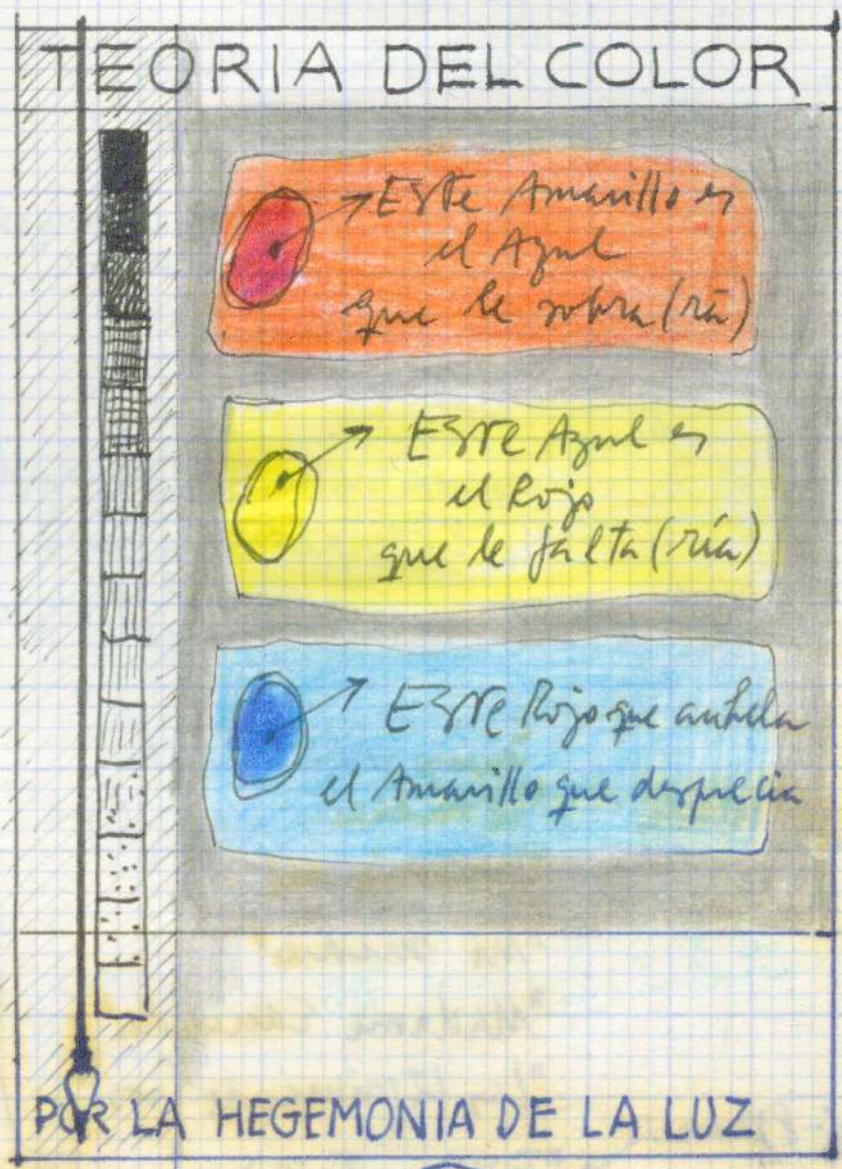 TEORIA DEL COLOR
Este Amarillo es
el Azul
que le sobra(ría)
Este Azul es
el Rojo
que le falta(ría)
Este Rojo que anhela
el Amarillo que desprecia
POR LA HEGEMONIA DE LA LUZ